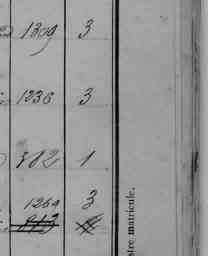 1309 3
1336 3
812 1
1264 3
tre matricule.